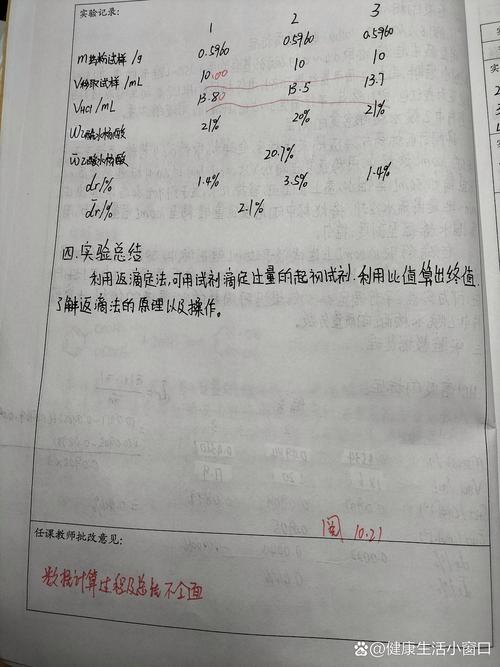 实验记录:
1 2 3
m热构试样/g 0.5960 0.5960 0.5960
V移取试样/mL 10.00 10 10
VHCl/mL 13.80 13.5 13.7
W乙酰水杨酸 21% 20% 21%
W̄乙酰水杨酸 20.7%
dr/% 1.4% 3.5% 1.4%
d̄r/% 2.1%
四.实验总结
利用返滴定法,可用试剂滴定过量的起初试剂.利用比值算出终值.
了解返滴法的原理以及操作。
阅 10.21
任课教师批改意见:
数据计算过程及总结不全面
头条 @健康生活小窗口